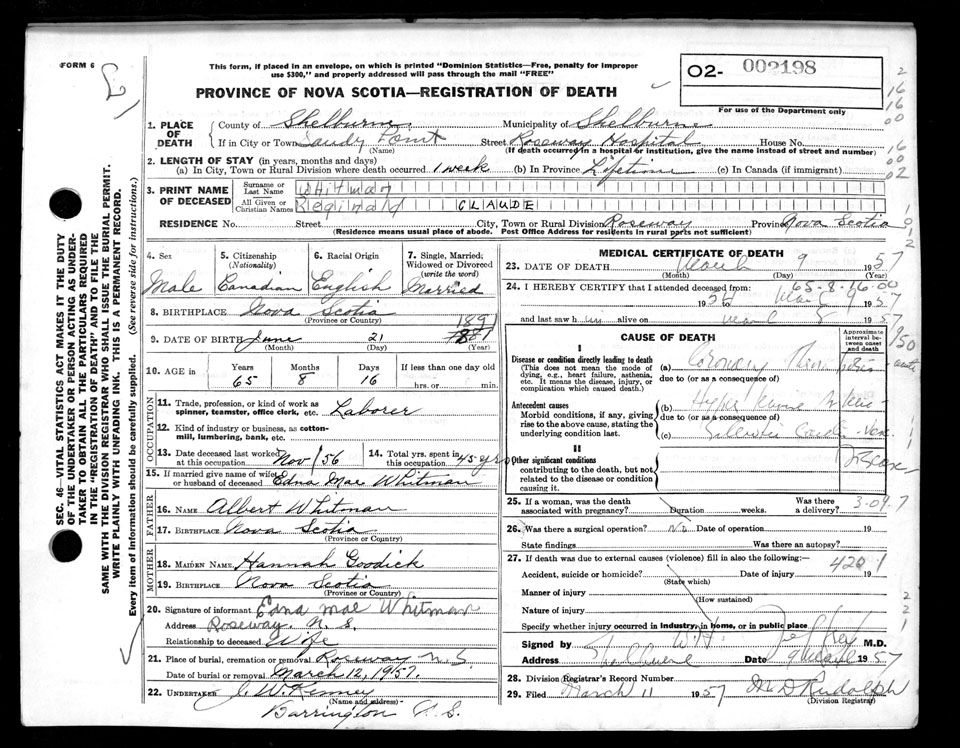 FORM 6
This form, if placed in an envelope, on which is printed "Dominion Statistics—Free, penalty for improper
use $300," and properly addressed will pass through the mail "FREE"
PROVINCE OF NOVA SCOTIA—REGISTRATION OF DEATH
02- 002198
For use of the Department only
2
16
16
00
16
00
02
SEC. 46—VITAL STATISTICS ACT MAKES IT THE DUTY
OF THE UNDERTAKER OR PERSON ACTING AS UNDER-
TAKER TO OBTAIN ALL THE PARTICULARS REQUIRED
IN THE "REGISTRATION OF DEATH" AND TO FILE THE
SAME WITH THE DIVISION REGISTRAR WHO SHALL ISSUE THE BURIAL PERMIT.
WRITE PLAINLY WITH UNFADING INK. THIS IS A PERMANENT RECORD.
Every item of information should be carefully supplied. (See reverse side for instructions.)
1. PLACE OF DEATH
County of Shelburne Municipality of Shelburne
If in City or Town Sandy Point Street Roseway Hospital House No.
(Name) (If death occurred in a hospital or institution, give the name instead of street and number)
2. LENGTH OF STAY (in years, months and days)
(a) In City, Town or Rural Division where death occurred 1 week (b) In Province Lifetime (c) In Canada (if immigrant)
3. PRINT NAME OF DECEASED
Surname or Last Name Whitman
All Given or Christian Names Reginald CLAUDE
RESIDENCE No. Street City, Town or Rural Division Roseway Province Nova Scotia
(Residence means usual place of abode. Post Office Address for residents in rural parts not sufficient)
4. Sex Male
5. Citizenship (Nationality) Canadian
6. Racial Origin English
7. Single, Married, Widowed or Divorced (write the word) Married
8. BIRTHPLACE Nova Scotia
(Province or Country)
1891
9. DATE OF BIRTH June 21
(Month) (Day) (Year)
10. AGE in Years 65 Months 8 Days 16 If less than one day
hrs. or min.
OCCUPATION
11. Trade, profession, or kind of work as
spinner, teamster, office clerk, etc. Laborer
12. Kind of industry or business, as cotton-
mill, lumbering, bank, etc.
13. Date deceased last worked at this occupation Nov/56
14. Total yrs. spent in this occupation 45 yrs
15. If married give name of wife or husband of deceased Edna Mae Whitman
FATHER
16. Name Albert Whitman
17. BIRTHPLACE Nova Scotia
(Province or Country)
MOTHER
18. MAIDEN NAME Hannah Goodick
19. BIRTHPLACE Nova Scotia
(Province or Country)
20. Signature of informant Edna Mae Whitman
Address Roseway. N. S.
Relationship to deceased Wife
21. Place of burial, cremation or removal Roseway N.S.
Date of burial or removal March 12, 1957.
22. UNDERTAKER J. W. Kenney
(Name and address)
Barrington N. S.
MEDICAL CERTIFICATE OF DEATH
23. DATE OF DEATH March 9 1957
(Month) (Day) (Year)
65-8-16-00
24. I HEREBY CERTIFY that I attended deceased from:
1956 to March 9 1957
and last saw him alive on March 8 1957
CAUSE OF DEATH
Approximate interval between onset and death
I
Disease or condition directly leading to death
(This does not mean the mode of
dying, e.g., heart failure, asthenia,
etc. It means the disease, injury, or
complication which caused death.)
(a) Coronary Thrombosis acute
due to (or as a consequence of)
Antecedent causes
Morbid conditions, if any, giving
rise to the above cause, stating the
underlying condition last.
(b)
due to (or as a consequence of)
(c)
II
Other significant conditions
contributing to the death, but not
related to the disease or condition
causing it.
25. If a woman, was the death associated with pregnancy? Duration weeks. Was there a delivery?
3-09.7
26. Was there a surgical operation? No Date of operation 19
State findings Was there an autopsy?
27. If death was due to external causes (violence) fill in also the following:—
420.1
Accident, suicide or homicide? Date of injury 19
(State which)
Manner of injury
(How sustained)
Nature of injury
Specify whether injury occurred in industry, in home, or in public place
Signed by M.D.
Address Shelburne Date 9 March 1957
28. Division Registrar's Record Number
29. Filed March 11 1957 M D Rudolph
(Division Registrar)